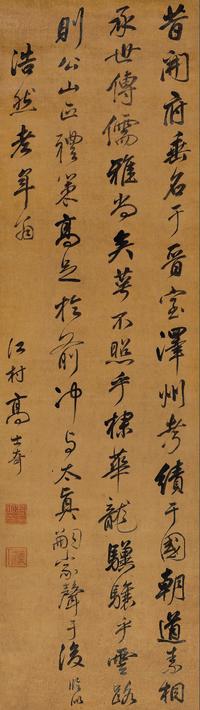 昔開府垂名于晉室澤州考績于國朝道素相
承世傳儒雅尚矣萼不照乎棣華龍驤驤乎雲路
則公山正禮策高足於前冲与太真嗣家聲于後 臨似
浩然老年翁
江村高士奇